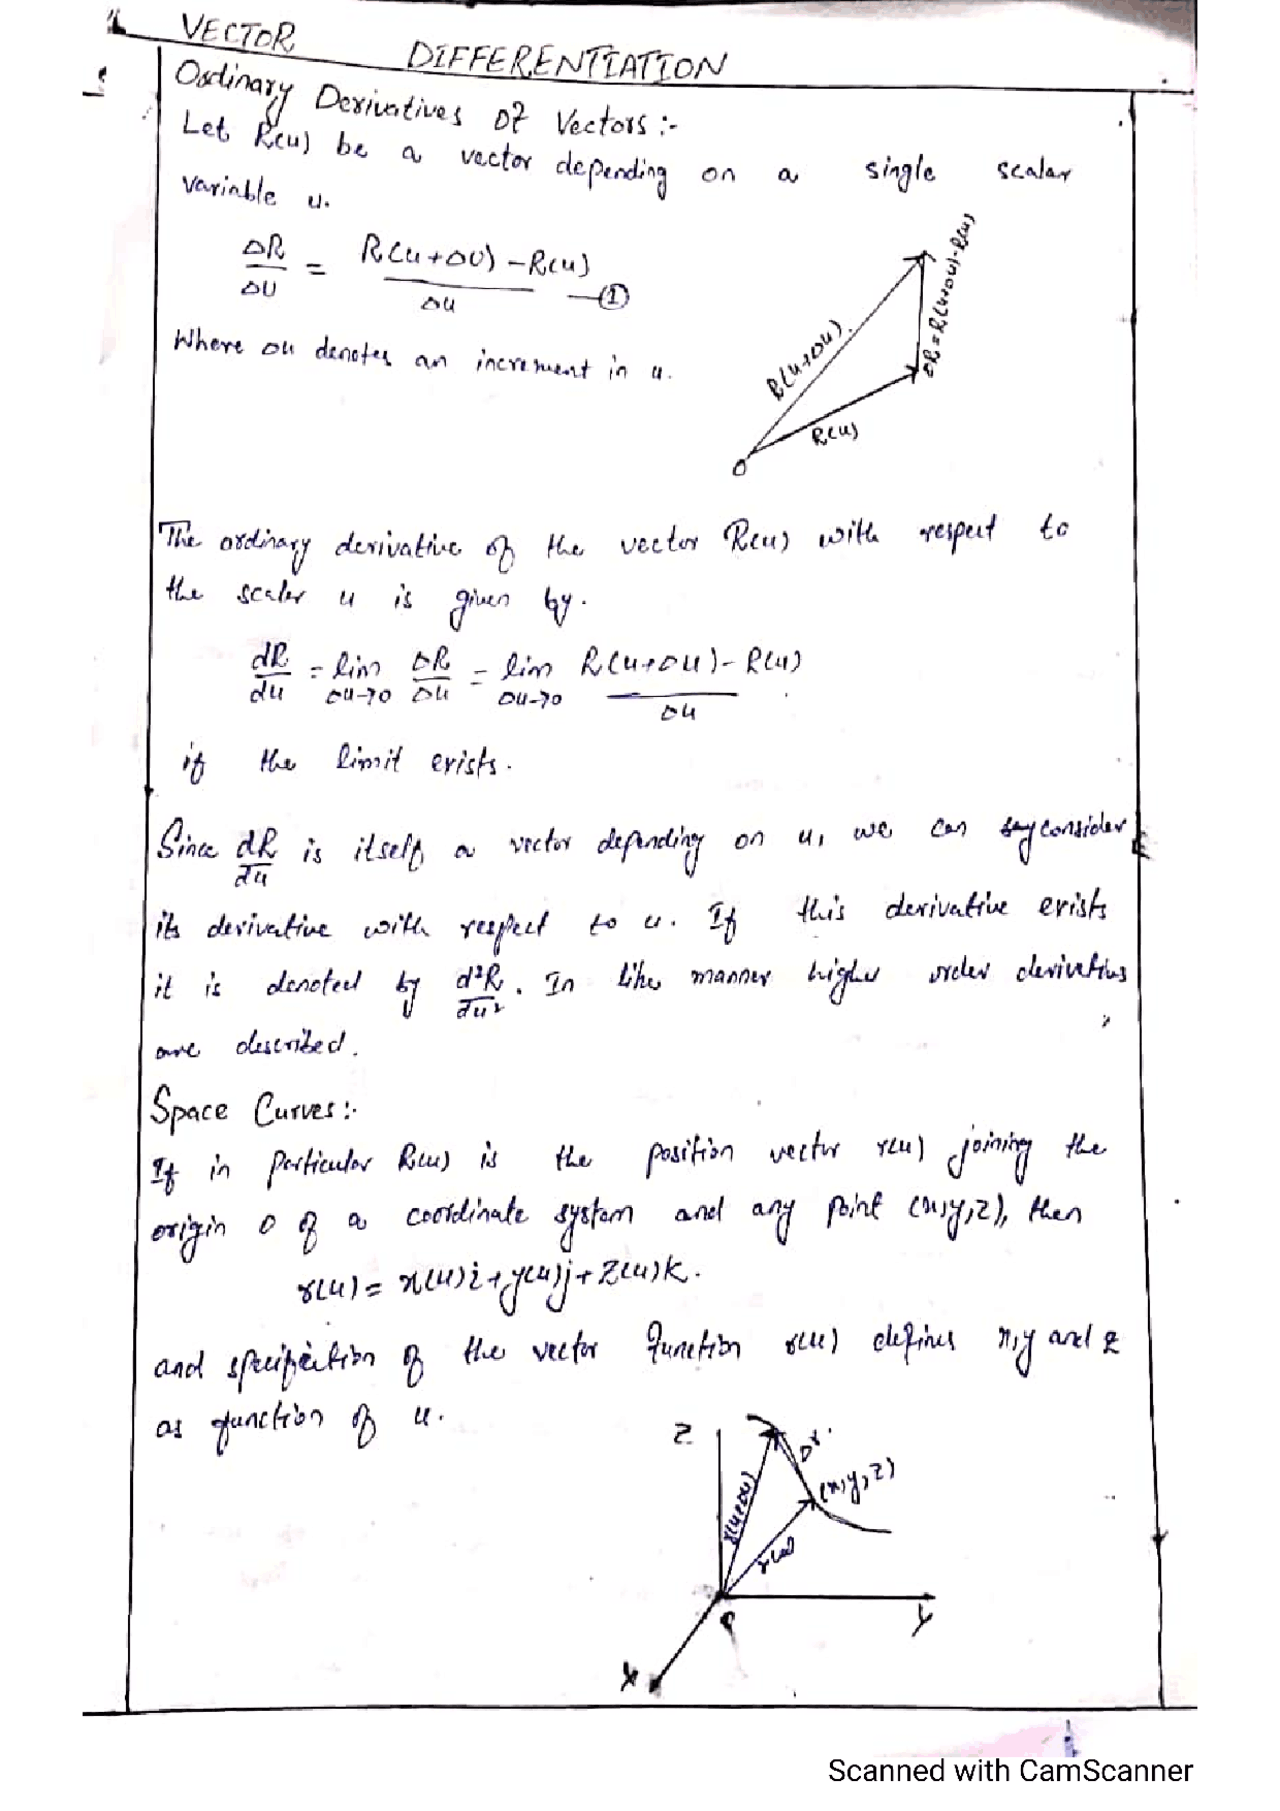 VECTOR DIFFERENTIATION
Ordinary Derivatives Of Vectors :-
Let R(u) be a vector depending on a single scalar
variable u.
ΔR/ΔU = R(u+ΔU) - R(u)/Δu —①
Where Δu denotes an increment in u.
R(u+Δu)
ΔR = R(u+Δu) - R(u)
R(u)
O
The ordinary derivative of the vector R(u) with respect to
the scaler u is given by.
dR/du = lim Δu→0 ΔR/Δu = lim Δu→0 R(u+Δu) - R(u)/Δu
if the limit exists.
Since dR/du is itself a vector depending on u, we can say consider
its derivative with respect to u. If this derivative exists
it is denoted by d²R/du². In like manner higher order derivatives
are described.
Space Curves :-
If in particular R(u) is the position vector r(u) joining the
origin O of a coordinate system and any point (x,y,z), then
r(u) = x(u)i + y(u)j + z(u)k.
and specification of the vector function r(u) defines x,y and z
as function of u.
Z
Δr
(x,y,z)
r(u+Δu)
r(u)
O
y
X
Scanned with CamScanner